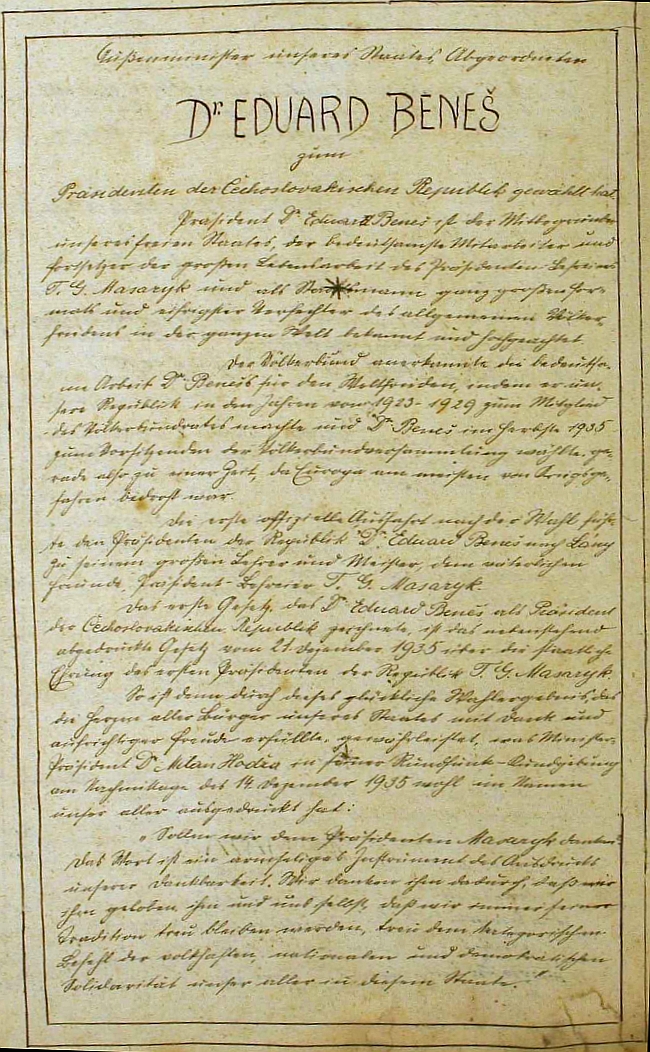 Außenminister unseres Staates, Abgeordneten
Dr. EDUARD BENEŠ
zum
Präsidenten der Čechoslovakischen Republik gewählt hat.
Präsident Dr. Eduard Beneš ist der Mitbegründer
unseres freien Staates, der bedeutsamste Mitarbeiter und
Fortsetzer der großen Lebensarbeit des Präsidenten-Befreiers
T. G. Masaryk und als Staatsmann ganz großen For-
mats und eifrigster Verfechter des allgemeinen Völker-
friedens in der ganzen Welt bekannt und hochgeachtet.
Der Völkerbund anerkannte die bedeutsa-
me Arbeit Dr. Beneš für den Weltfrieden, indem er un-
sere Republik in den Jahren vom 1923-1929 zum Mitglied
des Völkerbundrates machte und Dr. Beneš im Herbste 1935
zum Vorsitzenden der Völkerbundversammlung wählte, ge-
rade also zu einer Zeit, da Europa am meisten von Kriegsge-
fahren bedroht war.
Die erste offizielle Ausfahrt nach der Wahl führ-
te den Präsidenten der Republik Dr. Eduard Beneš nach Lány
zu seinem großen Lehrer und Meister, dem väterlichen
Freunde, Präsident-Befreier T. G. Masaryk.
Das erste Gesetz, das Dr. Eduard Beneš als Präsident
der Čechoslovakischen Republik zeichnete, ist das nebenstehend
abgedruckte Gesetz vom 21. Dezember 1935 über die staatliche
Ehrung des ersten Präsidenten der Republik T. G. Masaryk.
So ist denn durch dieses glückliche Wahlergebnis, das
die Herzen aller Bürger unseres Staates mit Dank und
aufrichtiger Freude erfüllte, gewährleistet, was Minister-
Präsident Dr. Milan Hodža in seiner Rundfunk-Kundgebung
am Nachmittage des 14. Dezember 1935 wohl im Namen
unser aller ausgedrückt hat:
„Sollen wir dem Präsidenten Masaryk danken?
Das Wort ist ein armseliges Instrument des Ausdrucks
unserer Dankbarkeit. Wir danken ihm dadurch, daß wir
ihm geloben, ihm und uns selbst, daß wir immer seiner
Tradition treu bleiben werden, treu dem kategorischen
Befehl der volkhaften, nationalen und demokratischen
Solidarität unser aller in diesem Staate."